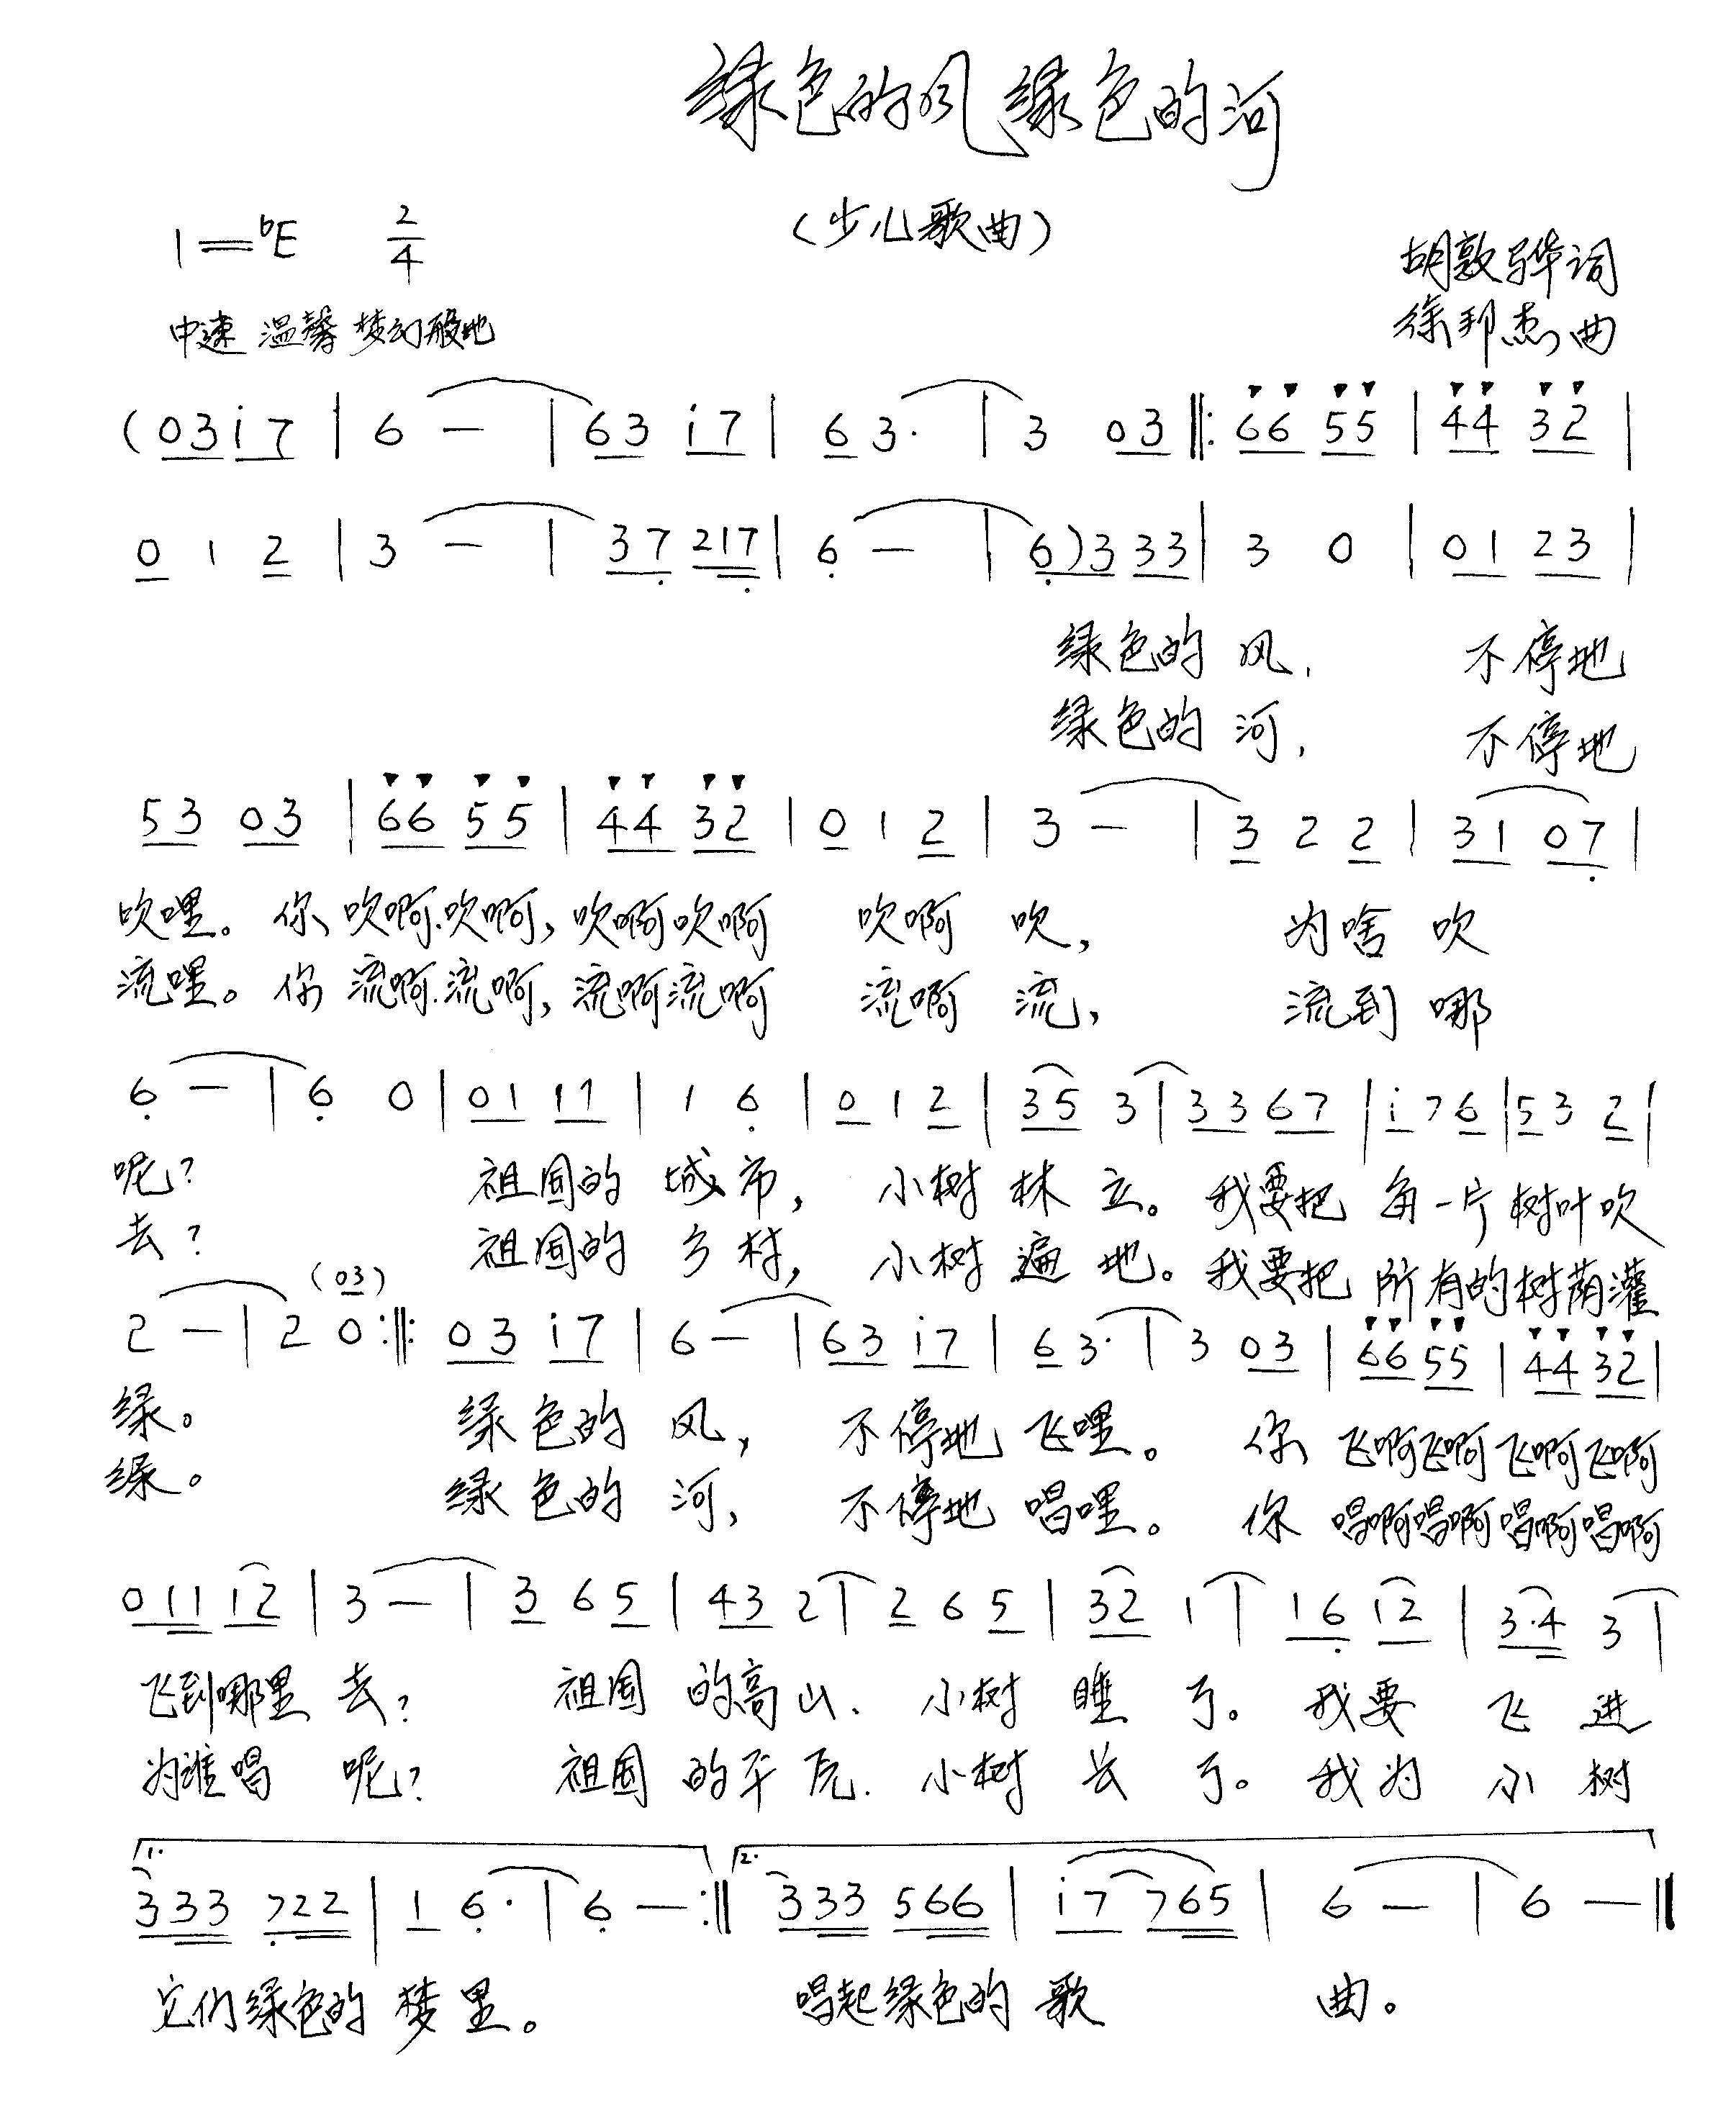 绿色的风绿色的河
（少儿歌曲）
1=♭E 2/4
胡敦骅词
中速 温馨 梦幻般地
徐邦杰曲
(03i7 | 6 — | 63 i7 | 63· | 3 03 ‖: 66 55 | 44 32 |
0 1 2 | 3 — | 37 217 | 6 — | 6)3 33 | 3 0 | 01 23 |
绿色的 风， 不停地
绿色的 河， 不停地
53 03 | 66 55 | 44 32 | 0 1 2 | 3 — | 3 2 2 | 31 07 |
吹哩。你吹啊.吹啊，吹啊吹啊 吹啊 吹， 为啥 吹
流哩。你流啊.流啊，流啊流啊 流啊 流， 流到 哪
6 — | 6 0 | 01 11 | 1 6 | 0 1 2 | 35 3 | 33 67 | i 7 6 | 5 3 2 |
呢？ 祖国的 城市， 小树 林 立。我要把 每一片 树叶吹
去？ 祖国的 乡村， 小树 遍 地。我要把 所有的树荫灌
(03)
2 — | 2 0 :‖: 03 i7 | 6 — | 63 i7 | 63· | 3 03 | 66 55 | 44 32 |
绿。 绿色的 风， 不停地 飞哩。 你 飞啊飞啊飞啊飞啊
绿。 绿色的 河， 不停地 唱哩。 你 唱啊唱啊唱啊唱啊
011 12 | 3 — | 3 6 5 | 43 2 | 2 6 5 | 32 1 | 16 12 | 3·4 3 |
飞到哪里 去？ 祖国 的高山. 小树 睡 了。 我要 飞 进
为谁唱 呢？ 祖国 的平原. 小树 长 了。 我为 小 树
1. 2.
333 722 | 1 6· | 6 — :‖ 333 566 | i7 765 | 6 — | 6 — ‖
它们绿色的 梦 里。 唱起绿色的 歌 曲。